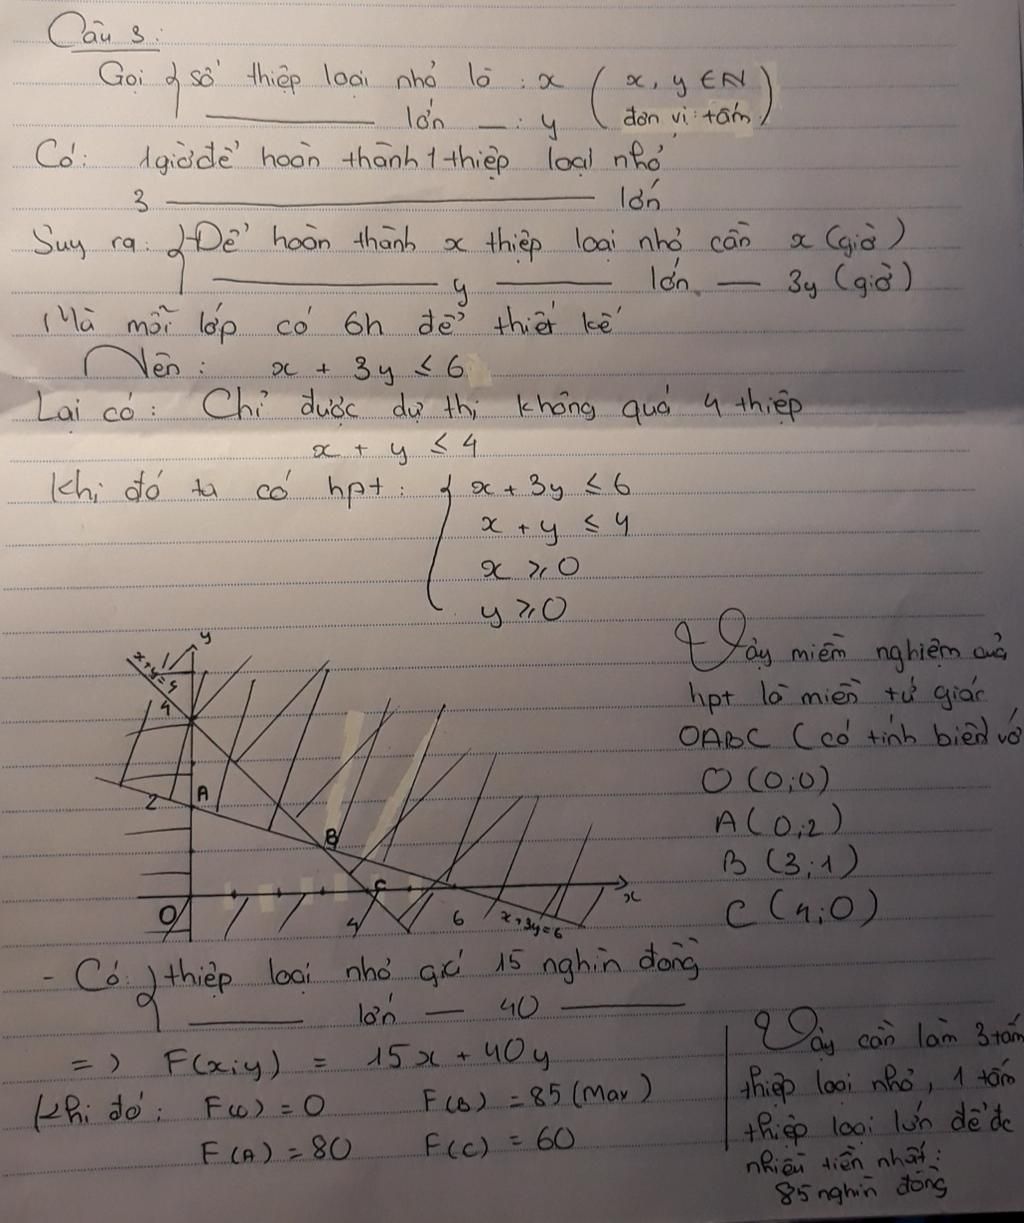 Câu 3:
Gọi { số thiệp loại nhỏ là : x ( x, y ∈ N
——— lớn — : y đơn vị : tấm )
Có: 1 giờ để hoàn thành 1 thiệp loại nhỏ
3 ——————— lớn
Suy ra: { Để hoàn thành x thiệp loại nhỏ cần x (giờ)
——————— y ——— lớn — 3y (giờ)
Mà mỗi lớp có 6h để thiết kế
Nên : x + 3y ≤ 6
Lại có : Chỉ được dự thi không quá 4 thiệp
x + y ≤ 4
Khi đó ta có hpt : { x + 3y ≤ 6
x + y ≤ 4
x ≥ 0
y ≥ 0
Vậy miền nghiệm của
hpt là miền tứ giác
OABC (có tính biên) với
O (0;0)
A (0;2)
B (3;1)
C (4;0)
y
x+y=4
4
2 A
B
C
O 4 6 x+3y=6 x
- Có: { thiệp loại nhỏ giá 15 nghìn đồng
——— lớn — 40 ———
=> F(x;y) = 15x + 40y
Khi đó : F(O) = 0 F(B) = 85 (Max)
F(A) = 80 F(C) = 60
Vậy cần làm 3 tấm
thiệp loại nhỏ, 1 tấm
thiệp loại lớn để đc
nhiều tiền nhất:
85 nghìn đồng